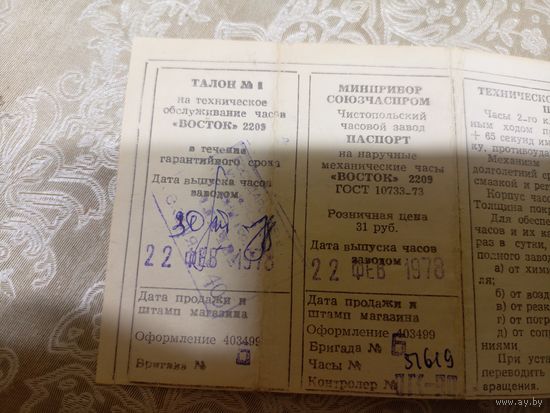 ТАЛОН № 1
на техническое
обслуживание часов
«ВОСТОК» 2209
в течение
гарантийного срока
Дата выпуска часов
заводом
22 ФЕВ 1978
Дата продажи и
штамп магазина
Оформление 403499
Бригада № 6
МИНПРИБОР
СОЮЗЧАСПРОМ
Чистопольский
часовой завод
ПАСПОРТ
на наручные
механические часы
«ВОСТОК» 2209
ГОСТ 10733-73
Розничная цена
31 руб.
Дата выпуска часов
заводом
22 ФЕВ 1978
Дата продажи и
штамп магазина
Оформление 403499
Бригада № 6
Часы № 51619
Контролер №
ТЕХНИЧЕСКОЕ
Часы 2-го к
ным ходом п
+ 65 секунд им
ку, противоуда
Механизм
долголетний ср
смазкой и рег
Корпус часо
Толщина покр
Для обеспе
часов и их ка
раз в сутки,
полного завод
а) от хими
ля;
б) от возд
в) от реак
г) от погра
д) от сопр
ниями
При уста
переводить
вращения.
www.ay.by